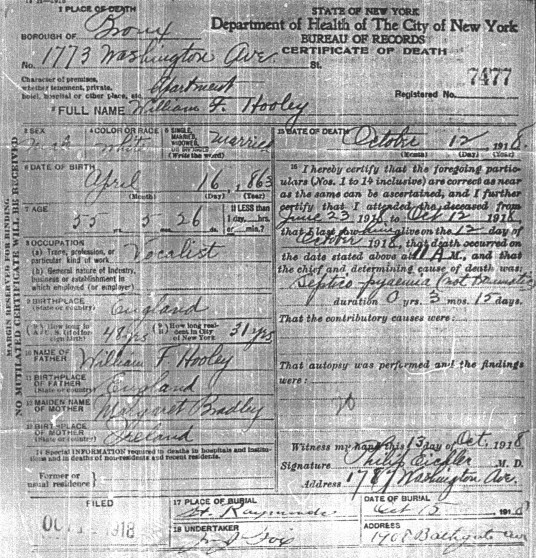 1 PLACE OF DEATH
STATE OF NEW YORK
Department of Health of The City of New York
BUREAU OF RECORDS
CERTIFICATE OF DEATH
BOROUGH OF Bronx
No. 1773 Washington Ave. St.
Character of premises,
whether tenement, private,
hotel, hospital or other place, etc. Apartment
Registered No. 7477
2 FULL NAME William F. Hooley
3 SEX
Male
4 COLOR OR RACE
White
5 SINGLE,
MARRIED,
WIDOWED,
OR DIVORCED
(Write the word)
Married
6 DATE OF BIRTH
April 16, 1863
(Month) (Day) (Year)
7 AGE
55 5 26
If LESS than
1 day, hrs.
or min.?
8 OCCUPATION
(a) Trade, profession, or
particular kind of work
Vocalist
(b) General nature of industry,
business or establishment in
which employed (or employer)
9 BIRTHPLACE
(State or country)
England
How long in
U. S. (if of for-
eign birth)
48 yrs
How long res-
ident in City
of New York
31 yrs
10 NAME OF
FATHER
William F Hooley
11 BIRTHPLACE
OF FATHER
(State or country)
England
12 MAIDEN NAME
OF MOTHER
Margaret Bradley
13 BIRTHPLACE
OF MOTHER
(State or country)
Ireland
14 Special INFORMATION required in deaths in hospitals and institu-
tions and in deaths of non-residents and recent residents.
Former or
usual residence
MARGIN RESERVED FOR BINDING
NO MUTILATED CERTIFICATE WILL BE RECEIVED
15 DATE OF DEATH
October 12 1918
(Month) (Day) (Year)
16 I hereby certify that the foregoing partic-
ulars (Nos. 1 to 14 inclusive) are correct as near
as the same can be ascertained, and I further
certify that I attended the deceased from
June 23 1918, to Oct 12 1918,
that I last saw him alive on the 12 day of
October 1918, that death occurred on
the date stated above at 11 A M., and that
the chief and determining cause of death was:
Septico pyaemia (not traumatic)
duration 0 yrs. 3 mos. 12 days.
That the contributory causes were:
That autopsy was performed and the findings
were:
Witness my hand this 13 day of Oct, 1918
Signature Philip Eichler M. D.
Address 1787 Washington Ave.
FILED
OCT 1918
17 PLACE OF BURIAL
St. Raymonds
DATE OF BURIAL
Oct 15 191
18 UNDERTAKER
Fox
ADDRESS
1908 Bathgate Ave